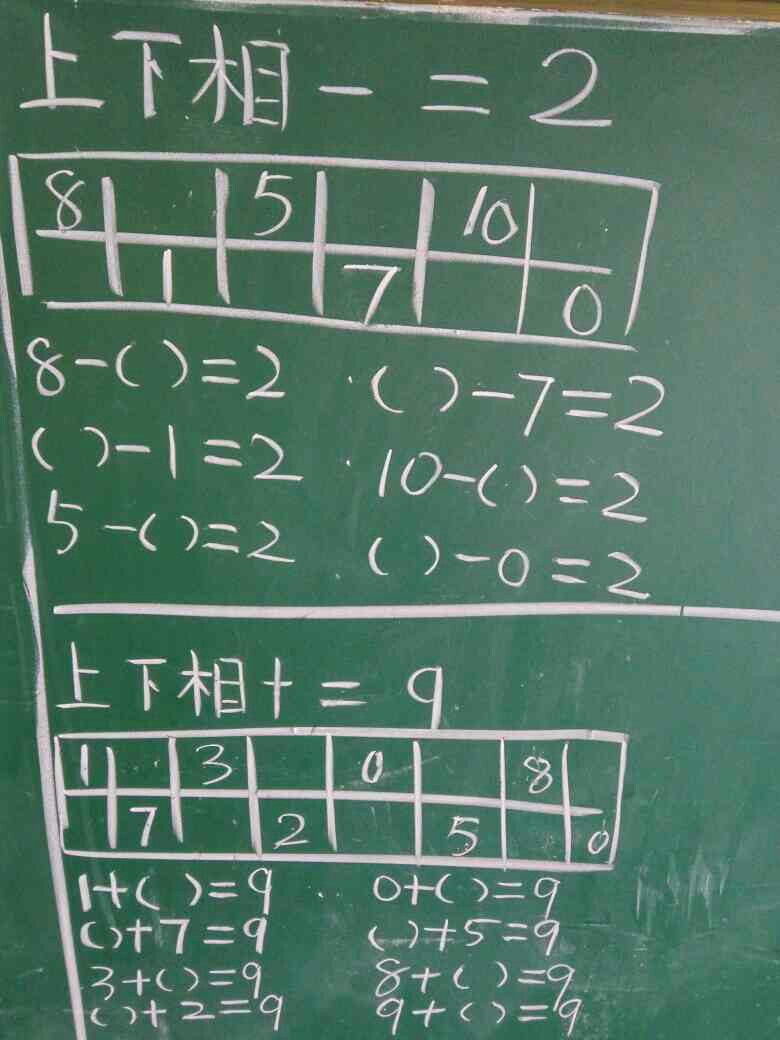 上下相－＝2
8 5 10
1 7 0
8－( )＝2 ( )－7＝2
( )－1＝2 10－( )＝2
5－( )＝2 ( )－0＝2
上下相＋＝9
1 3 0 8
7 2 5 0
1＋( )＝9 0＋( )＝9
( )＋7＝9 ( )＋5＝9
3＋( )＝9 8＋( )＝9
( )＋2＝9 9＋( )＝9